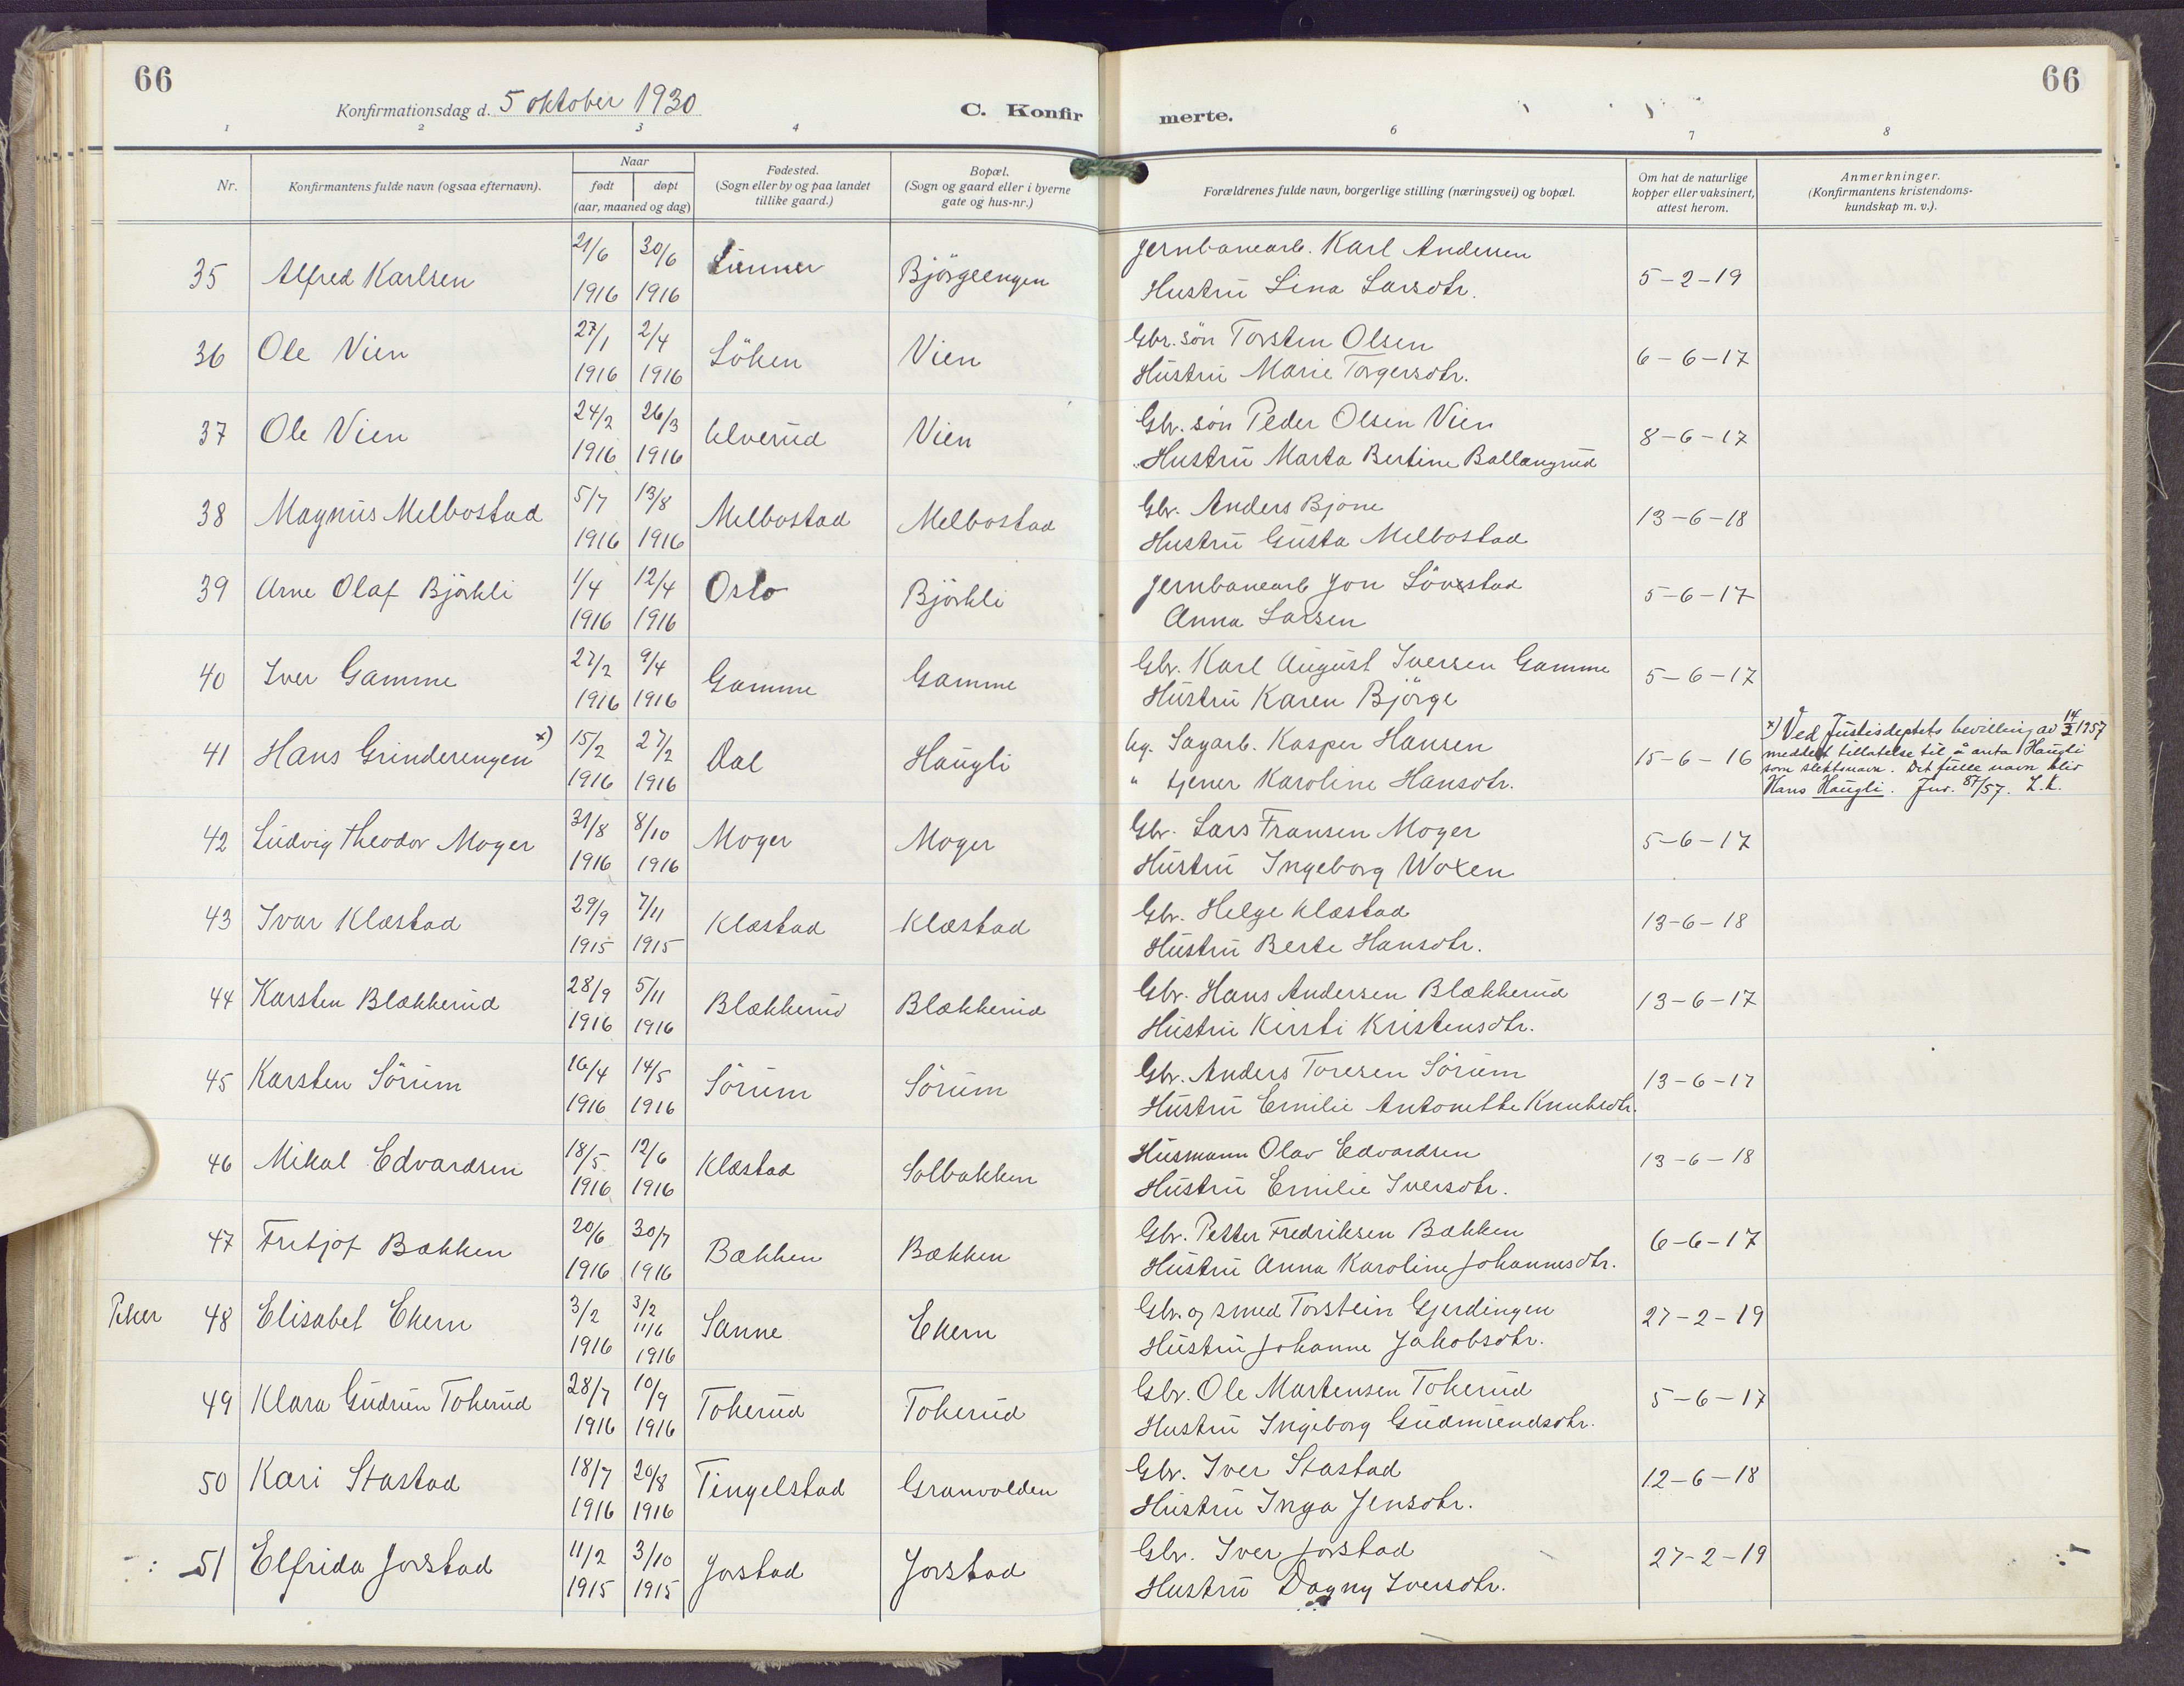 66
66
Konfirmationsdag d. 5 oktober 1930
C. Konfirmerte.
1 2 3 4 6 7 8
Nr.
Konfirmantens fulde navn (ogsaa efternavn).
Naar
født døpt
(aar, maaned og dag)
Fødested.
(Sogn eller by og paa landet
tillike gaard.)
Bopæl.
(Sogn og gaard eller i byerne
gate og hus-nr.)
Forældrenes fulde navn, borgerlige stilling (næringsvei) og bopæl.
Om hat de naturlige
kopper eller vaksinert,
attest herom.
Anmerkninger.
(Konfirmantens kristendoms-
kundskap m. v.).
35 Alfred Karlsen 21/6 1916 30/6 1916 Lunner Björgeengen Jernbanearb. Karl Andersen
Hustru Lina Larsdtr. 5-2-19
36 Ole Vien 27/1 1916 2/4 1916 Löken Vien Gbr. søn Torsten Olsen
Hustru Marie Torgersdtr. 6-6-17
37 Ole Vien 24/2 1916 26/3 1916 Ulverud Vien Gbr. søn Peder Olsen Vien
Hustru Marta Bertine Ballangrud 8-6-17
38 Magnus Melbostad 5/7 1916 13/8 1916 Melbostad Melbostad Gbr. Anders Bjone
Hustru Gusta Melbostad 13-6-18
39 Arne Olaf Björkli 1/4 1916 12/4 1916 Oslo Björkli Jernbanearb Jon Lövstad
Anna Larsen 5-6-17
40 Iver Gamme 27/2 1916 9/4 1916 Gamme Gamme Gbr. Karl August Iversen Gamme
Hustru Karen Björge 5-6-17
41 Hans Grinderengen x) 15/2 1916 27/2 1916 Dal Haugli Ug. Sagarb. Kasper Hansen
" tjener Karoline Hansdtr. 15-6-16
x) Ved Justisdeptets bevilling av 14/3 1957
meddelt tillatelse til å anta Haugli
som slektsnavn. Det fulle navn blir
Hans Haugli. Jnr. 87/57. L.K.
42 Ludvig Theodor Moger 31/8 1916 8/10 1916 Moger Moger Gbr. Lars Fransen Moger
Hustru Ingeborg Woxen 5-6-17
43 Ivar Klæstad 29/9 1915 7/11 1915 Klæstad Klæstad Gbr. Helge Klæstad
Hustru Berte Hansdtr. 13-6-18
44 Karsten Blækkerud 28/9 1916 5/11 1916 Blækkerud Blækkerud Gbr. Hans Andersen Blækkerud
Hustru Kirsti Kristensdtr. 13-6-17
45 Karsten Sörum 16/4 1916 14/5 1916 Sörum Sörum Gbr. Anders Toresen Sörum
Hustru Emilie Antonette Knutsdtr. 13-6-17
46 Mikal Edvardsen 18/5 1916 12/6 1916 Klæstad Solbakken Husmann Olav Edvardsen
Hustru Emilie Iversdtr. 13-6-18
47 Fritjof Bækken 20/6 1916 30/7 1916 Bækken Bækken Gbr. Petter Fredriksen Bækken
Hustru Anna Karoline Johannesdtr. 6-6-17
Piker 48 Elisabet Ekern 3/2 1916 3/2 11/6 1916 Sanne Ekern Gbr. og smed Torstein Gjerdingen
Hustru Johanne Jakobsdtr. 27-2-19
49 Klara Gudrun Tokerud 28/7 1916 10/9 1916 Tokerud Tokerud Gbr. Ole Martensen Tokerud
Hustru Ingeborg Gudmundsdtr. 5-6-17
50 Kari Stastad 18/7 1916 20/8 1916 Tingelstad Granvolden Gbr. Iver Stastad
Hustru Inga Jensdtr. 12-6-18
51 Elfrida Jorstad 11/2 1915 3/10 1915 Jorstad Jorstad Gbr. Iver Jorstad
Hustru Dagny Iversdtr. 27-2-19